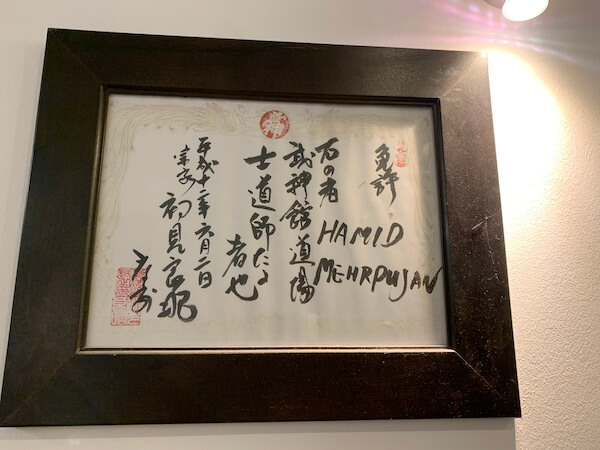 免許
右の者
HAMID
MEHRPUJAN
武神館道場
士道師たる
者也
平成十二年六月二日
宗家 初見良昭